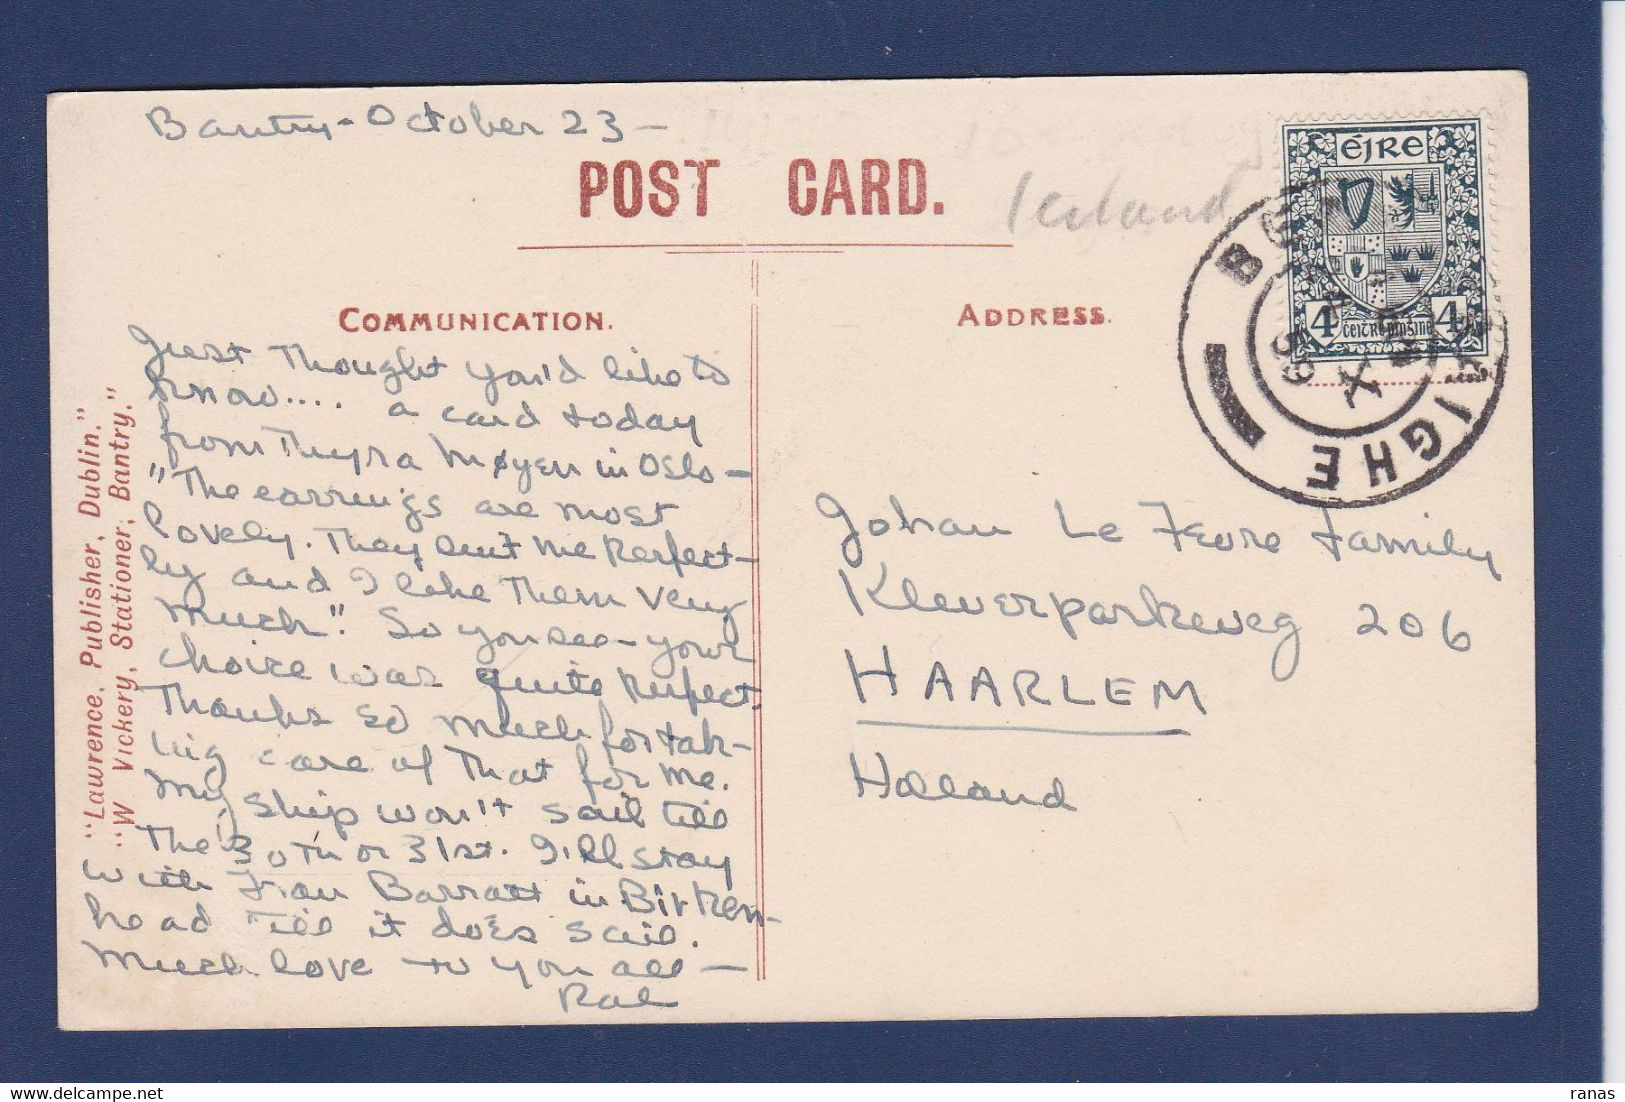 Bantry - October 23 -
POST CARD.
Ireland
ÉIRE
4 4
COMMUNICATION.
ADDRESS.
Just thought you'd like to
know.... a card today
from Thyra Møyen in Oslo -
"The earrings are most
lovely. They suit me perfect-
ly and I like them very
much". So you see - your
choice was quite perfect.
Thanks so much for tak-
ing care of that for me.
My ship won't sail till
the 30th or 31st. I'll stay
with Frau Barratt in Birken-
head till it does sail.
Much love to you all -
Johan Le Fevre Family
Kleverparkweg 206
HAARLEM
Holland
"Lawrence, Publisher, Dublin."
"W Vickery, Stationer, Bantry."
ranas